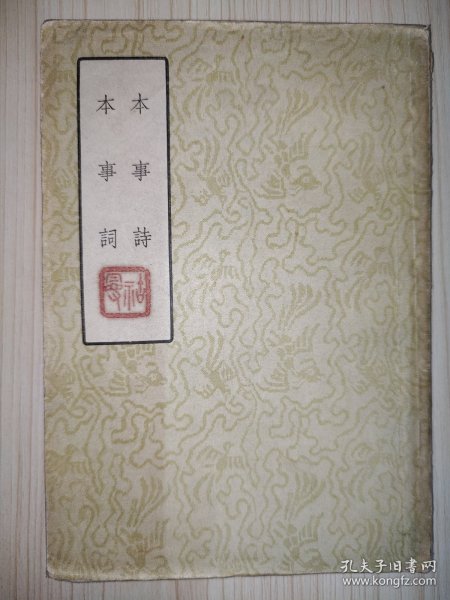 本事詩
本事詞
孔夫子旧书网
www.kongfz.com